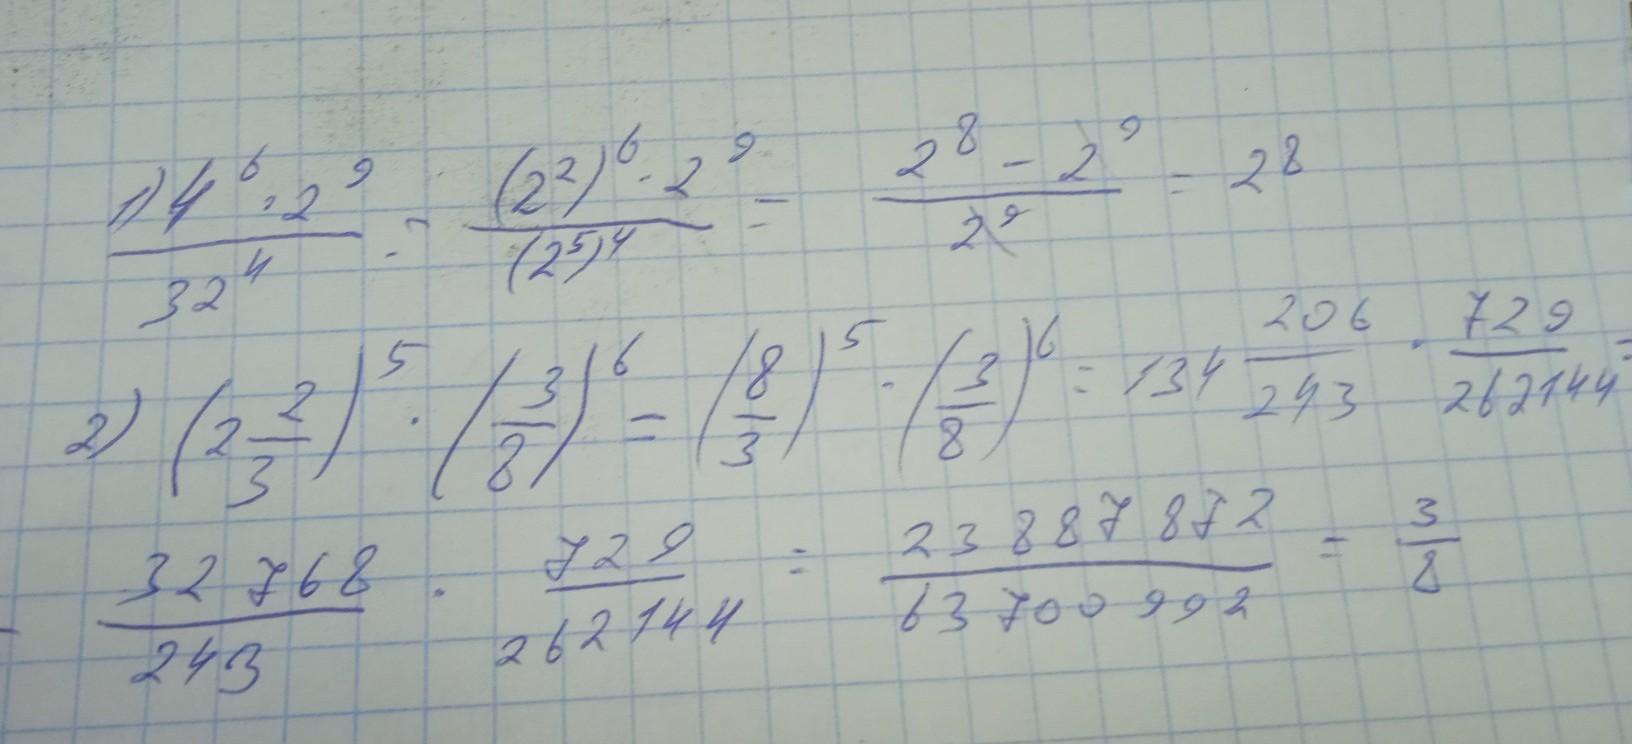 1) 4^6 · 2^9 / 32^4 = (2^2)^6 · 2^9 / (2^5)^4 = 2^8 - 2^9 / 2^9 = 2^8
2) (2 2/3)^5 · (3/8)^6 = (8/3)^5 · (3/8)^6 = 134 206/243 · 729/262144 =
= 32768/243 · 729/262144 = 23887872/63700992 = 3/8